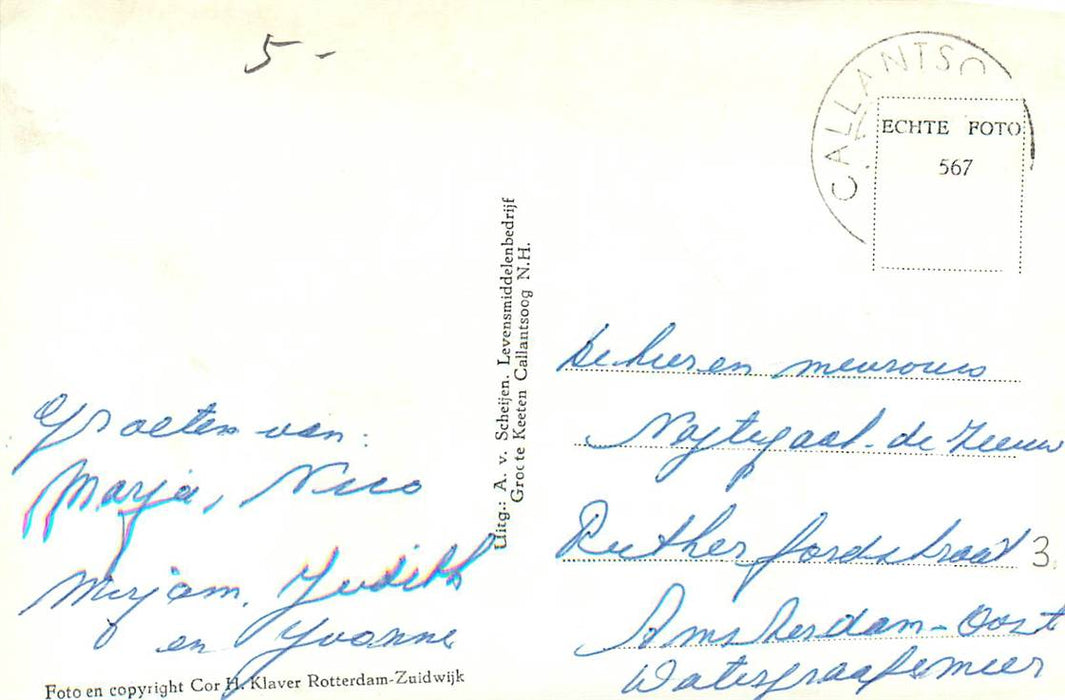 5-
CALLANTSO
ECHTE FOTO
567
Uitg.: A. v. Scheijen, Levensmiddelenbedrijf
Groote Keeten Callantsoog N.H.
Groeten van:
Marja, Nico
Mirjam, Judith
en Yvonne
De heer en mevrouw
Nagtegaal-de Zeeuw
Rutherfordstraat 3
Amsterdam-Oost
Watergraafsmeer
Foto en copyright Cor H. Klaver Rotterdam-Zuidwijk